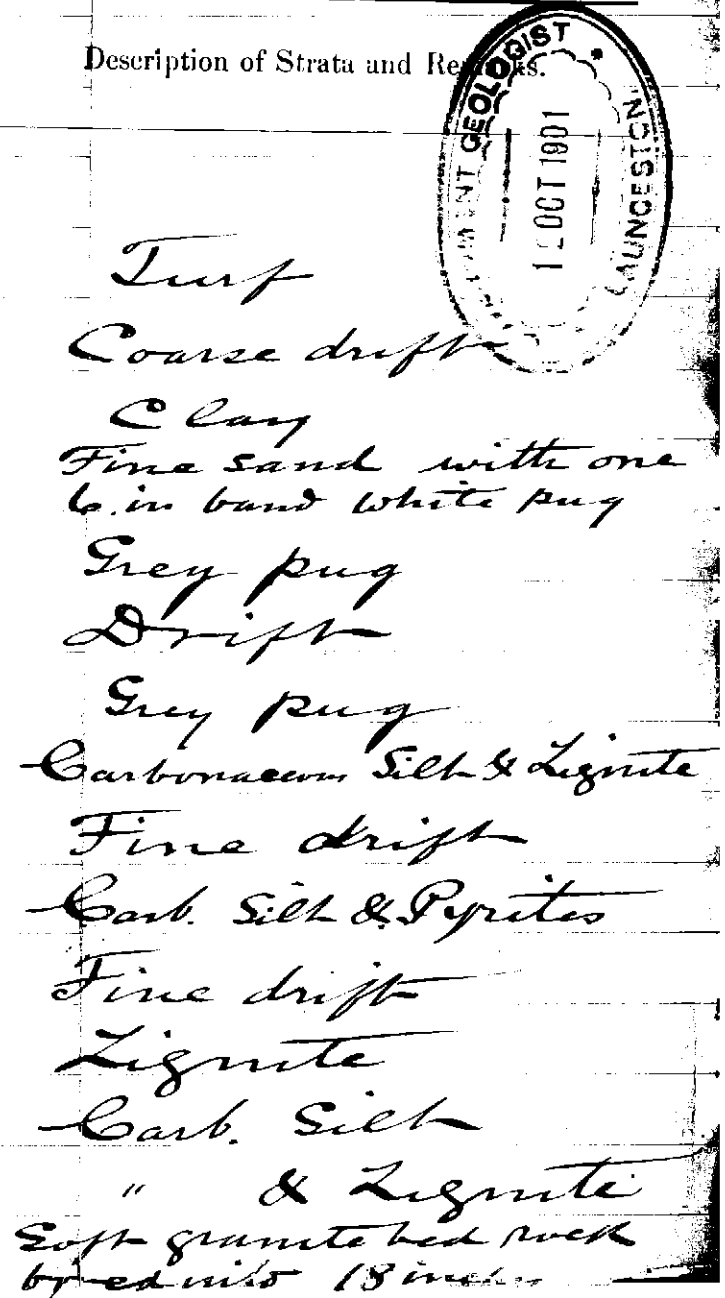 Description of Strata and Remarks.
GEOLOGIST
LAUNCESTON
OCT 1901
Turf
Coarse drift
Clay
Fine sand with one
6 in band white pug
Grey pug
Drift
Grey pug
Carbonaceous Silt & Lignite
Fine drift
Carb. Silt & Pyrites
Fine drift
Lignite
Carb. Silt
" & Lignite
Soft granite bed rock
bored into 18 inches